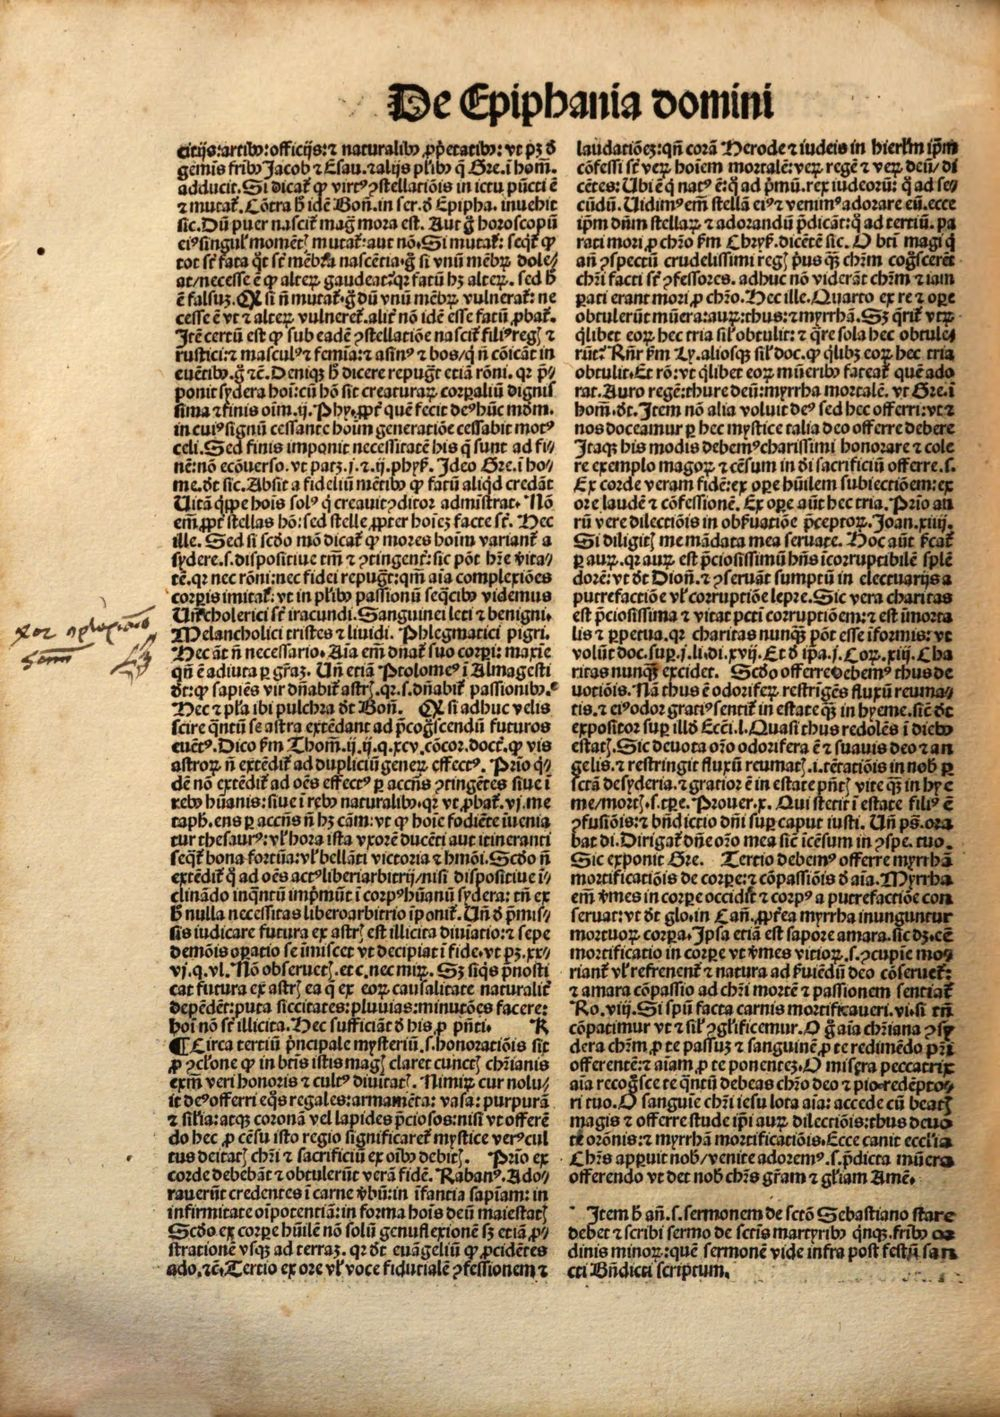 De Epiphania domini
citijs: artibꝰ: officijs: ⁊ naturalibꝰ ꝓpẽtatibꝰ: vt pꝫ ð
gemeĩs frĩbꝰ Jacob ⁊ Esau. ⁊ alijs plĩbꝰ q̃ Gre. ĩ hom̃.
adducit. Si dicat̃ ꝙ virtꝰ ꝯstellatiõis in ictu pũcti ẽ
⁊ mutat̃. Cõtra h̃ idẽ Boñ. in ser. ð Epipha. inuehit
sic. Dũ puer nascit̃ mag̃ mora est. Aut g̃ horoscopũ
eiꝰ singul̃ momẽtꝭ mutat̃: aut nõ. Si mutat̃: seqt̃ ꝙ
tot s̃t fata q̃t s̃t mẽbra nascẽtia. g̃ si vnũ mẽbrꝝ dole/
at/necesse ẽ ꝙ alterꝝ gaudeat: qꝛ fatũ hꝫ alterꝝ. sed h̃
ẽ falsuꝫ. Qꝙ si ñ mutat̃. g̃ dũ vnũ mẽbrꝝ vulnerat̃: ne
cesse ẽ vt ⁊ alterꝝ vulneret̃. alit̃ nõ idẽ esse fatũ ꝓbat̃.
Itẽ certũ est ꝙ sub eadẽ ꝯstellatiõe nascit̃ filiꝰ regꝭ ⁊
rustici: ⁊ masculꝰ ⁊ femia: ⁊ asinꝰ ⁊ bos/ q̃ ñ cõicãt in
euẽtibꝰ. g̃ ⁊c̃. Deniqꝫ h̃ dicere repugt̃ etiã rõni. qꝛ p̃/
ponit sydera hoĩ: cũ hõ sit creaturaꝝ corꝑaliũ dignis
sima ⁊ finis oĩm. ij. Phy. ꝓpt̃ quẽ fecit deꝰ hũc mũdm.
in cuiꝰ signũ cessante hoĩm generatiõe cessabit motꝰ
celi. Sed finis imponit necessitatẽ his q̃ sunt ad fi/
nẽ: nõ ecõuerso. vt patꝫ. j. ⁊ .ij. phyẜ. Ideo Gre. ĩ ho/
me. ð̃t sic. Absit a fideliũ mẽtibꝰ ꝙ fatũ aliqd̃ credãt
Vitã q̃ppe hoĩs solꝰ q̃ creauit ꝯditor admĩstrat. Nõ
em̃ ꝓpt̃ stellas hõ: sed stelle ꝓpter hoĩeꝫ facte s̃t. Hec
ille. Sed si scd̃o mõ dicat̃ ꝙ mores hoĩm variant̃ a
sydere. s. dispositiue tm̃ ⁊ ꝯtingent̃: sic põt hr̃e v̾ita/
tẽ. qꝛ nec rõni: nec fidei repugt̃: qm̃ aĩa complexiões
corꝑis imitat̃: vt in plĩbꝰ passionũ seq̃cibꝰ videmus
Vñ cholerici s̃t iracundi. Sanguinei leti ⁊ benigni.
Melancholici tristes ⁊ liuidi. Phlegmatici pigri.
Hec ãt ñ necessario. Aĩa em̃ dñat̃ suo corꝑi: maxie
qñ ẽ adiuta ꝑ gr̃aꝫ. Vñ etiã Ptolomeꝰ ĩ Almagesti
ð̃t: ꝙ sapiẽs vir dñabit̃ astrꝭ. qꝛ. s. dñabit̃ passionibꝰ.
Hec ⁊ pl̃a ibi pulchra ð̃t Boñ. Qꝙ si adhuc velis
scire q̃ntũ se astra extẽdant ad p̃cogscendũ futuros
euẽtꝰ. Dico ẜm Thom̃. ij. ij. q. xcv. cõcor. doct̃. ꝙ vis
astroꝝ ñ extẽdit̃ ad dupliciũ generꝝ effectꝰ. Prĩo q̃/
dẽ nõ extẽdit̃ ad oẽs effectꝰ ꝑ accñs ꝯtingẽtes siue ĩ
rebꝰ hũanis: siue ĩ rebꝰ naturalibꝰ. qꝛ vt ꝓbat̃. vj. me
taph. ens ꝑ accñs ñ hꝫ cãm: vt ꝙ hoĩe fodiẽte ĩuenia
tur thesaurꝰ: vl̃ hora ista vxorẽ ducẽti aut itineranti
seqt̃ bona fortũa: vl̃ bellãti victoria ⁊ hmõi. Scd̃o ñ
extẽdit̃ q̃ ad oẽs actꝰ liberi arbitrij/nisi dispositiue ĩ/
clinãdo inq̃ntũ imp̃mũt ĩ corpꝰ hũanũ sydera: tñ ex
h̃ nulla necessitas libero arbitrio ĩponit̃. Vñ ð p̃mis/
sis iudicare futura ex astrꝭ est illicita diuĩatio: ⁊ sepe
demõis oꝑatio se ĩmiscet vt decipiat ĩ fide. vt pꝫ. xx/
vj. q. vl̃. Nõ obseruetꝭ. et c. nec mirꝝ. Sꝫ siq̃s p̃nosti
cat futura ex astrꝭ ea q̃ ex eoꝝ causalitate naturalit̃
depẽdẽt: puta siccitates: pluuias: minutões facere:
hoĩ nõ s̃t illicita. Hec sufficiãt ð his ꝓ pñti. R
¶ Circa tertiũ p̃ncipale mysteriũ. s. honoratiõis sit
ꝓ ꝯclone ꝙ in btĩs istis magꝭ claret cunctꝭ chr̃ianis
exm̃ veri honoris ⁊ cultꝰ diuitatꝭ. Nimiꝝ cur nolu/
it deꝰ offerri eq̃s regales: armamẽta: vasa: purpurã
⁊ sil̃ia: atqꝫ coronã vel lapides p̃ciosos: nisi vt offerẽ
do hec ꝓ cẽsu isto regio significaret̃ mystice verꝰ cul
tus deitatꝭ chr̃i ⁊ sacrificiũ ex oĩbꝰ debitꝭ. Prĩo ex
corde debebãt ⁊ obtulerũt verã fidẽ. Rabanꝰ. Ado/
rauerũt credentes ĩ carne v̾bũ: in ĩfantia sapiam: in
infirmitate oĩpotentiã: in forma hoĩs deũ maiestatꝭ
Scd̃o ex corꝑe hũilẽ nõ solũ genuflexionẽ sꝫ etiã ꝓ/
strationẽ vsqꝫ ad terraꝫ. qꝛ ð̃t euãgeliũ ꝙ ꝓcidẽtes
ado. ⁊c̃. Tertio ex ore vl̃ voce fiducialẽ ꝯfessionem ⁊
laudationeꝫ: qñ corã Herode ⁊ iudeis in hierl̃m ip̃m
cõfessi s̃t veꝝ hoĩem mortalẽ: veꝝ regẽ ⁊ veꝝ deũ/ di
cẽtes: Ubi ẽ q̃ natꝰ ẽ: q̃ ad p̃mũ. rex iudeorũ: q̃ ad se/
cũdũ. Uidimꝰ em̃ stellã eiꝰ ⁊ venimꝰ adorare eũ. ecce
ip̃m dñm stellaꝝ ⁊ adorandũ p̃dicãt: q̃ ad tertiũ. pa
rati mori ꝓ chr̃o ẜm Chryẜ. dicẽtẽ sic. O bti magi q̃
añ ꝯspectũ crudelissimi regꝭ priꝰqꝫ chr̃m cog̃scerẽt
chr̃i facti s̃t ꝯfessores. adhuc nõ viderãt chr̃m ⁊ iam
ꝑati erant mori ꝓ chr̃o. Hec ille. Quarto ex re ⁊ oꝑe
obtulerũt mũera: auꝝ: thus: ⁊ myrrhã. Sꝫ q̃rit̃ vtꝝ
q̃libet eoꝝ hec tria sil̃ obtulit: ⁊ q̃re sola hec obtule/
rũt. Rñr ẜm Ly. aliosqꝫ sil̃ doc. ꝙ q̃libꝫ eoꝝ hec tria
obtulit. Et rõ: vt q̃libet eoꝝ mũeribꝰ fateat̃ quẽ ado
rat. Auro regẽ: thure deũ: myrrha mortalẽ. vt Gre. ĩ
hom̃. ð̃t. Itẽm nõ alia voluit deꝰ sed hec offerri: vt ⁊
nos doceamur ꝑ hec mystice talia deo offerre debere
Itaqꝫ his modis debemꝰ charissimi honorare ⁊ cole
re exemplo magoꝝ ⁊ cẽsum in ð̃i sacrificiũ offerre. s.
Ex corde veram fidẽ: ex oꝑe hũilem subiectiõem: ex
ore laudẽ ⁊ cõfessionẽ. Ex oꝑe aũt hec tria. Prĩo au
rũ vere dilectiõis in obẜuatiõe p̃ceptoꝝ. Joan. xiiij.
Si diligitꝭ me mãdata mea seruate. Hoc aũt ẜcat̃
ꝑ auꝝ. qꝛ auꝝ est p̃ciosissimũ hñs ĩcorruptibilẽ splẽ
dorẽ: vt ð̃t Dioñ. ⁊ ꝯseruãt sumptũ in electuarijs a
putrefactiõe vl̃ corruptiõe lepre. Sic vera charitas
est p̃ciosissima ⁊ vitat pcti corruptiõem: ⁊ est ĩmorta
lis ⁊ ꝑpetua. qꝛ charitas nunqꝫ põt esse ĩformis: vt
volũt doc. suꝑ. j. li. di. xvij. Et ð ip̃a. j. Coꝝ. xiij. Cha
ritas nunqꝫ excidet. Scd̃o offerre debemꝰ thus de
uotiõis. Nã thus ẽ odoriferꝝ restrĩgẽs fluxũ reuma/
tis. ⁊ eiꝰ odor gratiꝰ sentit̃ in estate qꝫ in hyeme. sicut̃ ð̃t
expositor suꝑ illð Ecci. l. Quasi thus redolẽs ĩ diebꝰ
estatꝭ. Sic deuota or̃o odorifera ẽ ⁊ suauis deo ⁊ an
gelis. ⁊ restringit fluxũ reumatꝭ. i. tẽtatiõis in nob̃ ꝑ
scr̃ã desyderia. ⁊ gratior ẽ in estate pñtꝭ vite qꝫ in hye
me/mortꝭ. s. tꝑe. Prouer. x. Qui stetit ĩ estate filiꝰ ẽ
ꝯfusiõis: ⁊ bñdictio dñi suꝑ caput iusti. Vñ ps̃. ora
bat di. Dirigat̃ dñe or̃o mea sicut ĩcẽsum in ꝯspe. tuo.
Sic exponit Gre. Tertio debemꝰ offerre myrrhã
mortificatiõis de corꝑe: ⁊ cõpassiõis ð aĩa. Myrrha
em̃ v̾mes in corꝑe occidit ⁊ corpꝰ a putrefactiõe con
seruat: vt ð̃t glo. in Cañ. ꝓpt̃ea myrrha inunguntur
mortuoꝝ corꝑa. Ipsa etiã est sapore amara. sic dꝫ. eẽ
mortificatio in corꝑe vt v̾mes vitioꝝ. s. ꝯcupie mo/
riant̃ vl̃ refrenent̃ ⁊ natura ad ẜuiẽdũ deo cõseruet̃:
⁊ amara cõpassio ad chr̃i mortẽ ⁊ passionem sentiat̃
Ro. viij. Si spũ facta carnis mortificaueri. vi. si tñ
cõpatimur vt ⁊ sil̃ ꝯgl̃ificemur. O g̃ aĩa chr̃iana ꝯsy
dera chr̃m ꝓ te passuꝫ ⁊ sanguinẽ ꝓ te redimẽdo pr̃i
offerentẽ: ⁊ aĩam ꝓ te ponenteꝫ. O misera peccatrix
aĩa recog̃sce te q̃ntũ debeas chr̃o deo ⁊ pio redẽpto/
ri tuo. O sanguie chr̃i iesu lota aĩa: accede cũ beatꝭ
magis ⁊ offerre stude ip̃i auꝝ dilectiõis: thus deuo
te or̃onis: ⁊ myrrhã mortificatiõis. Ecce canit eccl̃ia
Chr̃s apꝑuit nob̃/ venite adoremꝰ. s. p̃dicta mũera
offerendo vt det nob̃ chr̃s gr̃am ⁊ gl̃iam Amẽ.
Item h̃ añ. s. sermonem de scto Sebastiano stare
debet ⁊ scribi sermo de sctis martyribꝰ qnqꝫ. fribꝰ or
dinis minoꝝ: quẽ sermonẽ vide infra post festũ san
cti Bñdicti scriptum.